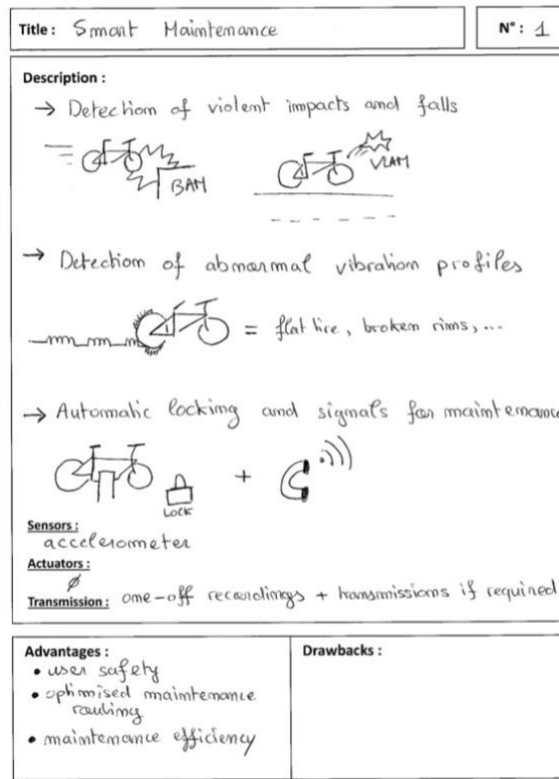 Title : Smart Maintenance
N° : 1
Description :
→ Detection of violent impacts and falls
BAM
VLAM
→ Detection of abnormal vibration profiles
= flat tire, broken rims, ...
→ Automatic locking and signals for maintenance
+
LOCK
Sensors :
accelerometer
Actuators :
ø
Transmission : one-off recordings + transmissions if required
Advantages :
• user safety
• optimised maintenance
routing
• maintenance efficiency
Drawbacks :